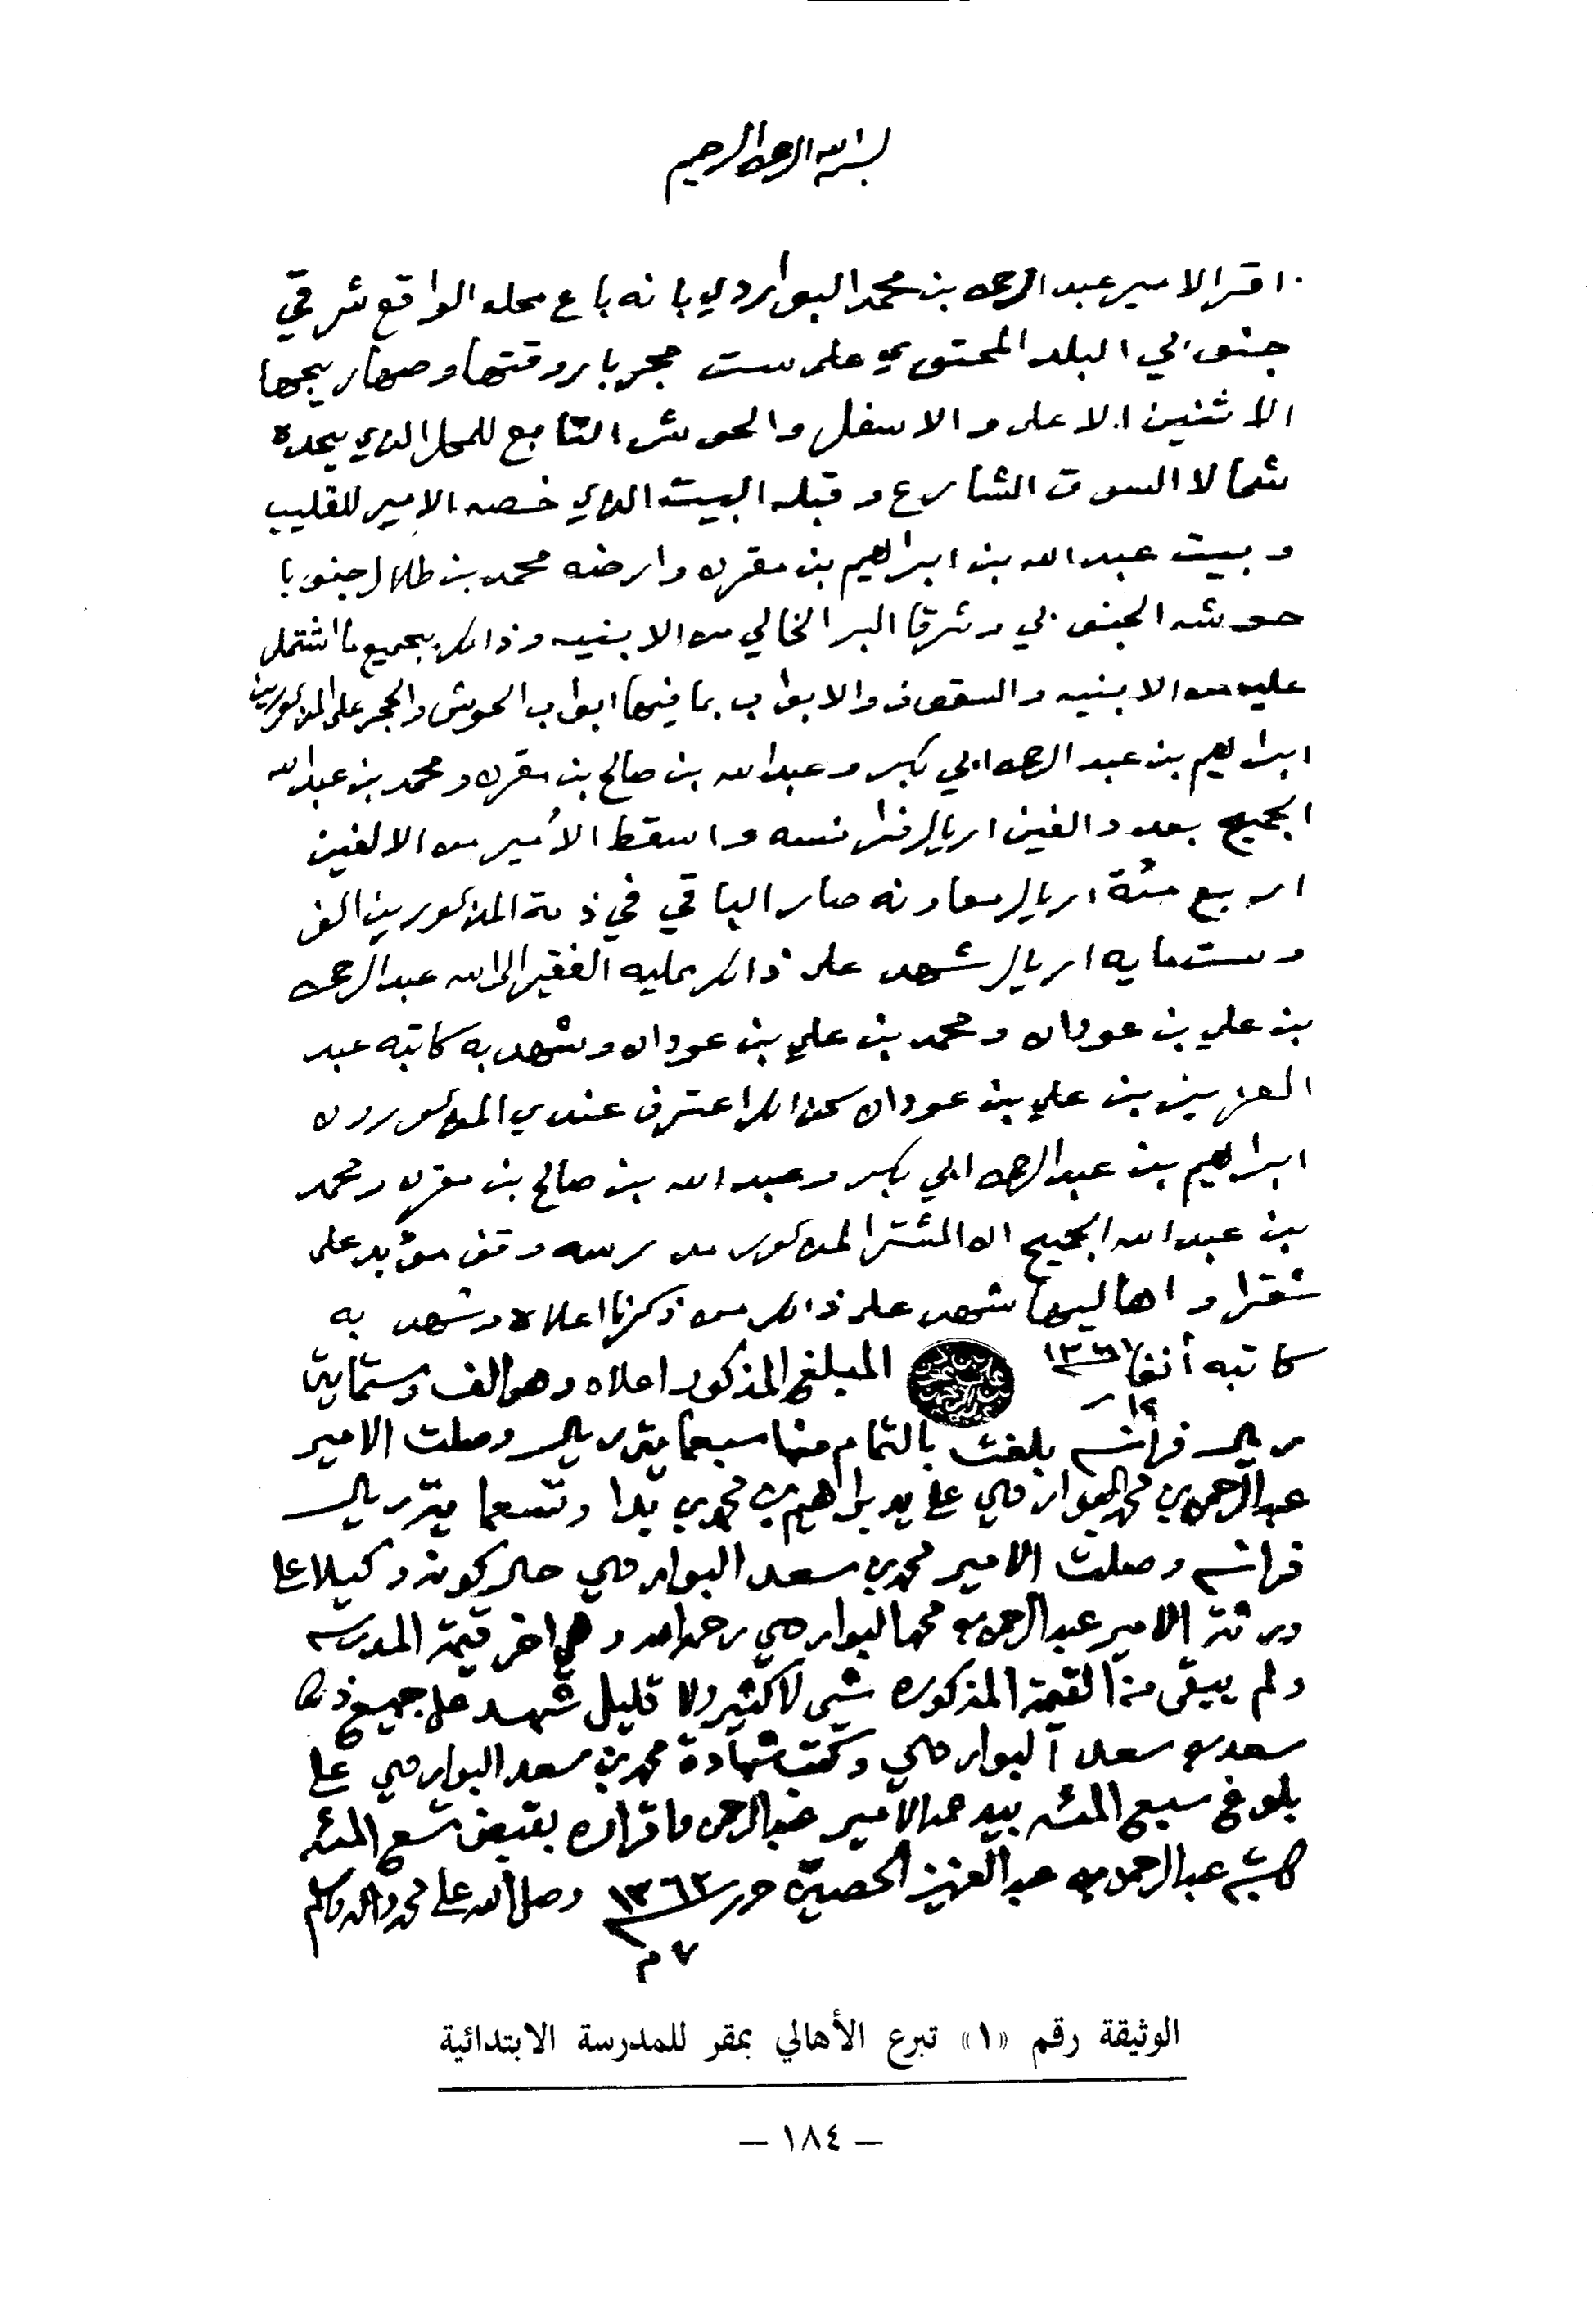 بسم الله الرحمن الرحيم
اقر الامير عبد الرحمن بن محمد البواردي بانه باع محله الواقع شرقي
جنوبي البلد المحتوي على ست حجر باروقتها وصهاريجها
الاثنين الاعلى والاسفل والحوش التابع للمحل الذي يحده
شمالا السوق الشارع وقبله البيت الذي خصه الامير للقليب
وبيت عبد الله بن ابراهيم بن مقرن وارضه محمد بن طلال جنوبا
حوشه الجنوبي وشرقا البر الخالي من الابنيه وذالك بجميع ما اشتمل
عليه من الابنيه والسقوف والابواب بما فيها ابواب الحوش والحجر على المذكورين
ابراهيم بن عبد الرحمن ابي بكر وعبد الله بن صالح بن مقرن ومحمد بن عبد الله
الجميح بعدد الفين اريال فرانسه واسقط الأمير من الالفين
اربع مئة اريال معاونه صار الباقي في ذمة المذكورين الف
وست مايه اريال شهد على ذالك عليه الفقير الى الله عبد الرحمن
بن علي بن عودان ومحمد بن علي بن عودان وشهد به كاتبه عبد
العزيز بن علي بن عودان كذالك اعترف عندي المذكورون
ابراهيم بن عبد الرحمن ابي بكر وعبد الله بن صالح بن مقرن ومحمد
بن عبد الله الجميح ان المشترا المذكور مدرسه وقف مؤبد على
شقرا واهاليها شهد على ذالك من ذكرنا اعلاه وشهد به
كاتبه أنفا ١٣٦١ المبلغ المذكور اعلاه وهو الف وستماية
ريال فرانسه بلغت بالتمام منها سبعماية ريال وصلت الامير
عبد الرحمن بن محمد البواردي على يد براهيم بن محمد بن بدا وتسعماية ريال
فرانسه وصلت الامير محمد بن سعد البواردي حال كونه وكيلا على
ورثة الامير عبد الرحمن بن محمد البواردي رحمه الله وهي اخر قيمة المدرسه
ولم يبقى من القيمة المذكوره شي لا كثير ولا قليل شهد على جميع ذلك
سعد بن سعد البواردي وكتب شهادة محمد بن سعد البواردي على
بلوغ سبع المئه بيد عمه الامير عبد الرحمن واقراره بقبض تسع المئه
كاتبه عبد الرحمن بن عبد العزيز الحصين حرر ١٣٦٢ وصلى الله على محمد واله وسلم
٧ م
الوثيقة رقم «١» تبرع الأهالي بمقر للمدرسة الابتدائية
— ١٨٤ —